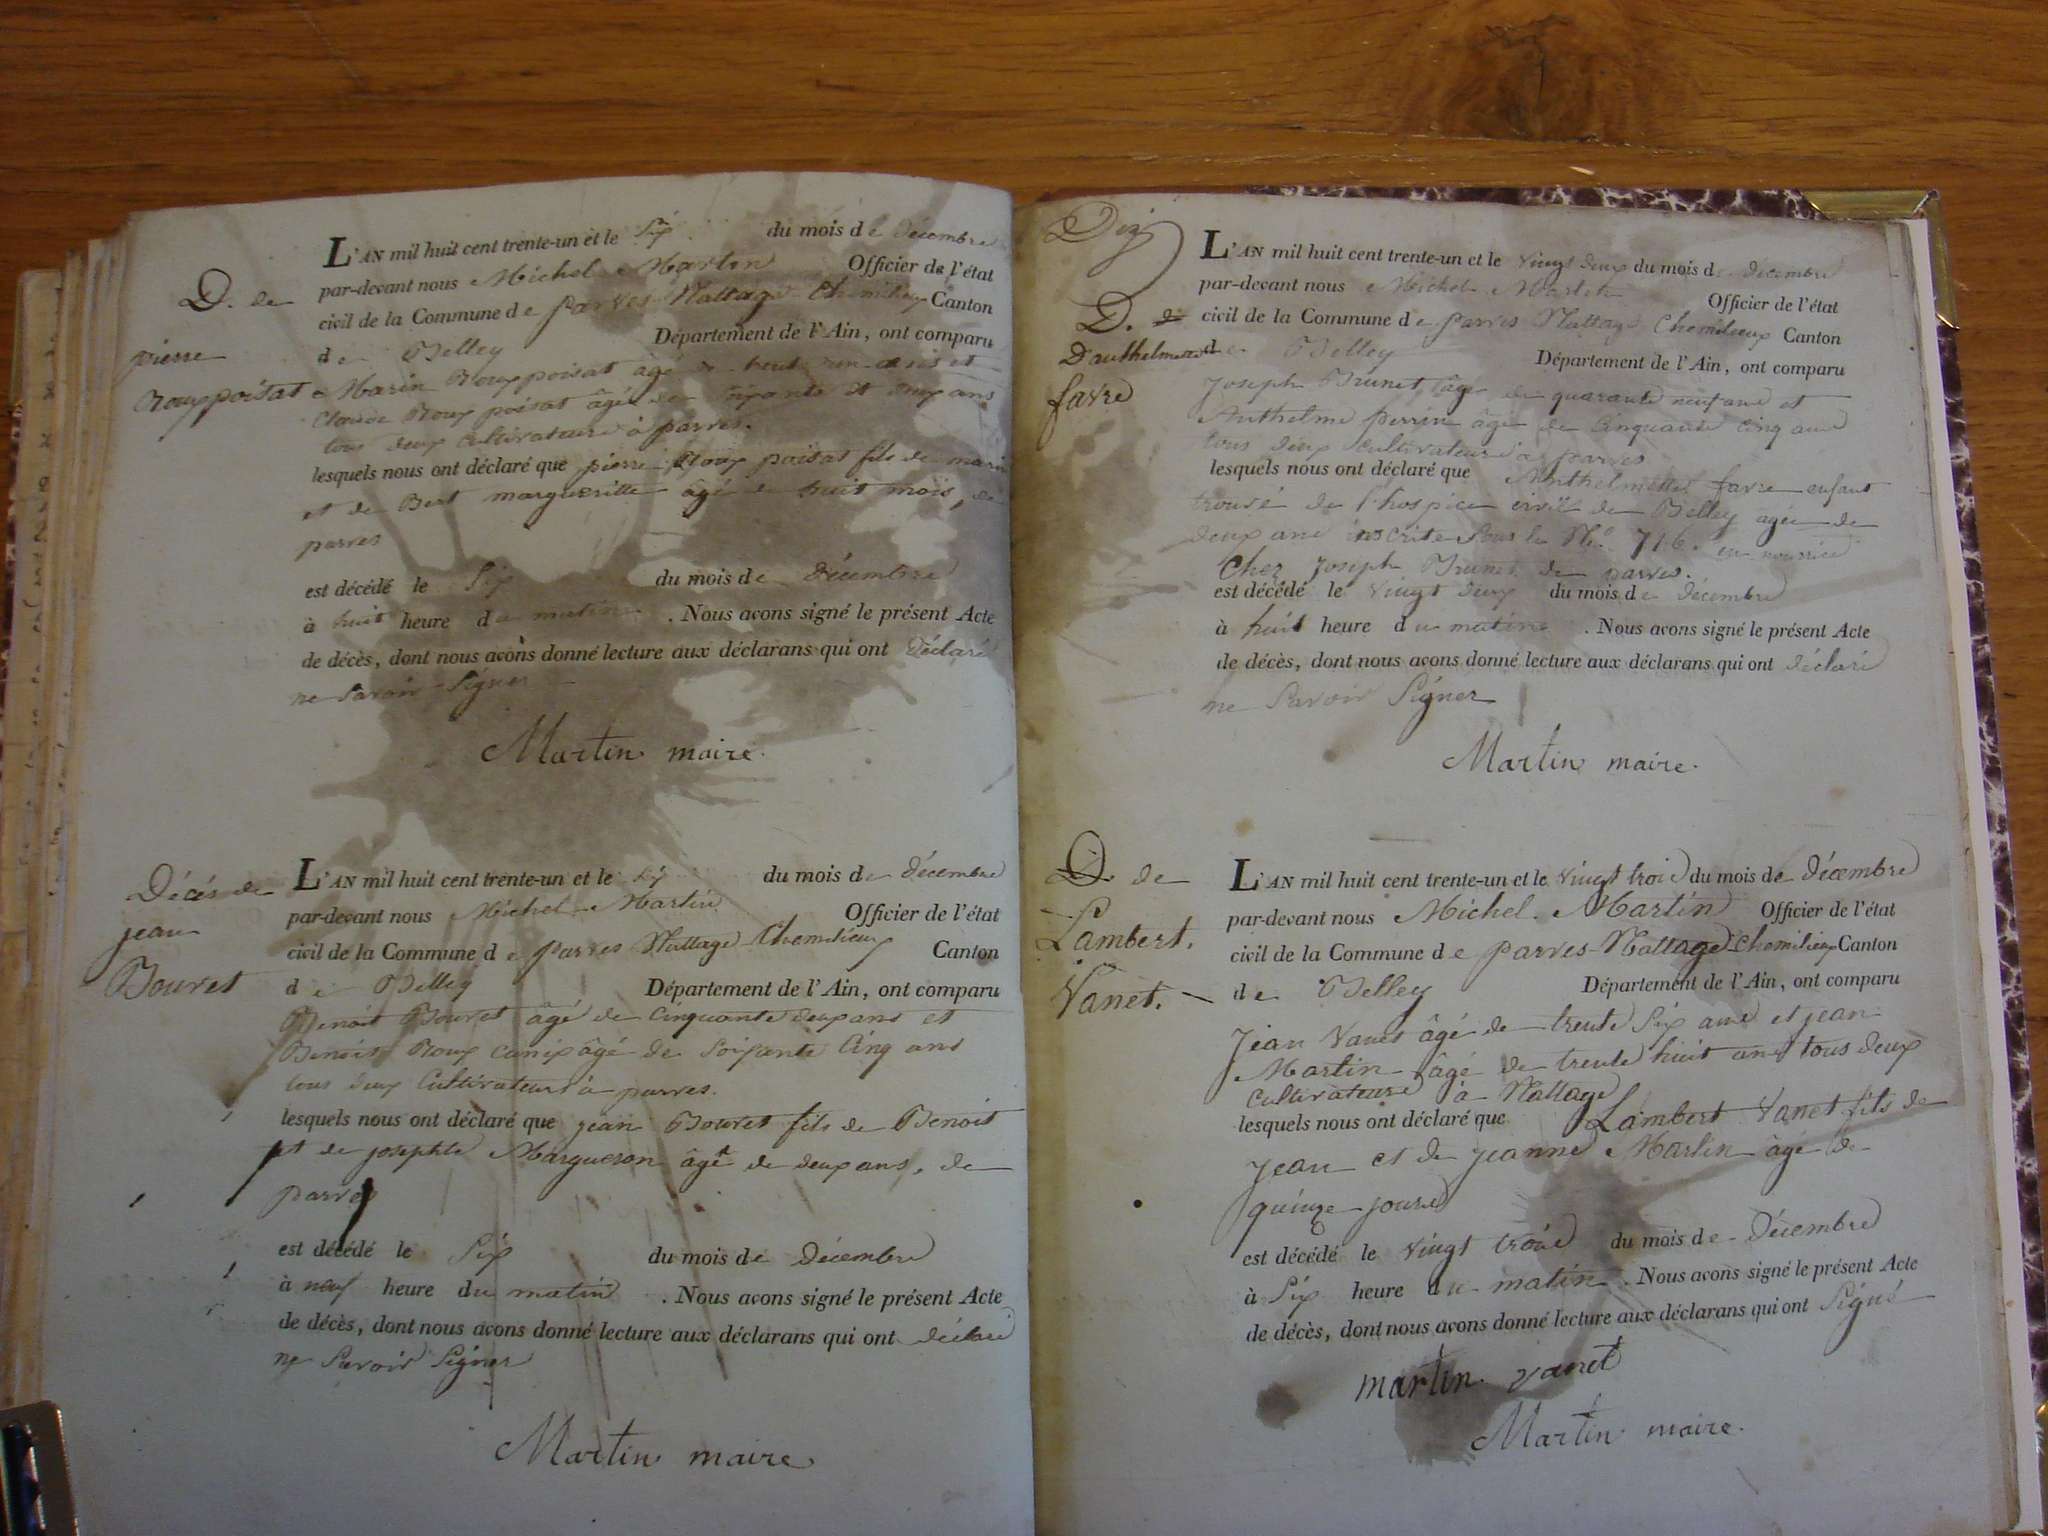 D. de
pierre
Roux poisat
L'AN mil huit cent trente-un et le Six du mois de décembre
par-devant nous Michel Martin Officier de l'état
civil de la Commune de parves Nattage Chemilieux Canton
de Belley Département de l'Ain, ont comparu
Marin Roux poisat âgé de trente un ans et
Claude Roux poisat âgé de soixante et deux ans
tous deux Cultivateurs à parves.
lesquels nous ont déclaré que pierre Roux poisat fils de marin
et de Bert margueritte âgé de huit mois, de
parves
est décédé le Six du mois de Décembre
à huit heure du matin. Nous avons signé le présent Acte
de décès, dont nous avons donné lecture aux déclarans qui ont déclaré
ne Savoir Signer
Martin maire.
Décès de
jean
Bouvet
L'AN mil huit cent trente-un et le Six du mois de décembre
par-devant nous Michel Martin Officier de l'état
civil de la Commune de parves Nattage Chemilieux Canton
de Belley Département de l'Ain, ont comparu
Benoit Bouvet âgé de Cinquante deux ans et
Benoit Roux âgé de Soixante Cinq ans
tous deux Cultivateurs à parves.
lesquels nous ont déclaré que jean Bouvet fils de Benoit
et de josephte Margueron âgé de deux ans, de
parves
est décédé le Six du mois de Décembre
à neuf heure du matin. Nous avons signé le présent Acte
de décès, dont nous avons donné lecture aux déclarans qui ont déclaré
ne Savoir Signer
Martin maire
Dix
D. de
D'anthelmette
favre
L'AN mil huit cent trente-un et le vingt deux du mois de décembre
par-devant nous Michel Martin Officier de l'état
civil de la Commune de parves Nattage Chemilieux Canton
de Belley Département de l'Ain, ont comparu
Joseph Brunet, âgé de quarante neuf ans et
Anthelme perrin âgé de Cinquante Cinq ans
tous deux Cultivateurs à parves
lesquels nous ont déclaré que Anthelmette favre enfant
trouvé de l'hospice civil de Belley âgée de
deux ans inscrite Sous le No. 716. en nourrice
Chez Joseph Brunet de parves.
est décédé le vingt deux du mois de décembre
à huit heure du matin. Nous avons signé le présent Acte
de décès, dont nous avons donné lecture aux déclarans qui ont déclaré
ne Savoir Signer
Martin maire.
D. de
Lambert.
Vanet.
L'AN mil huit cent trente-un et le vingt trois du mois de décembre
par-devant nous Michel Martin Officier de l'état
civil de la Commune de parves-Nattage Chemilieux Canton
de Belley Département de l'Ain, ont comparu
Jean Vanet âgé de trente Six ans et jean
Martin âgé de trente huit ans tous deux
Cultivateurs à Nattage
lesquels nous ont déclaré que Lambert Vanet fils de
Jean et de jeanne Martin âgé de
quinze jours
est décédé le vingt trois du mois de Décembre
à Six heure du matin. Nous avons signé le présent Acte
de décès, dont nous avons donné lecture aux déclarans qui ont Signé
martin. vanet
Martin maire.